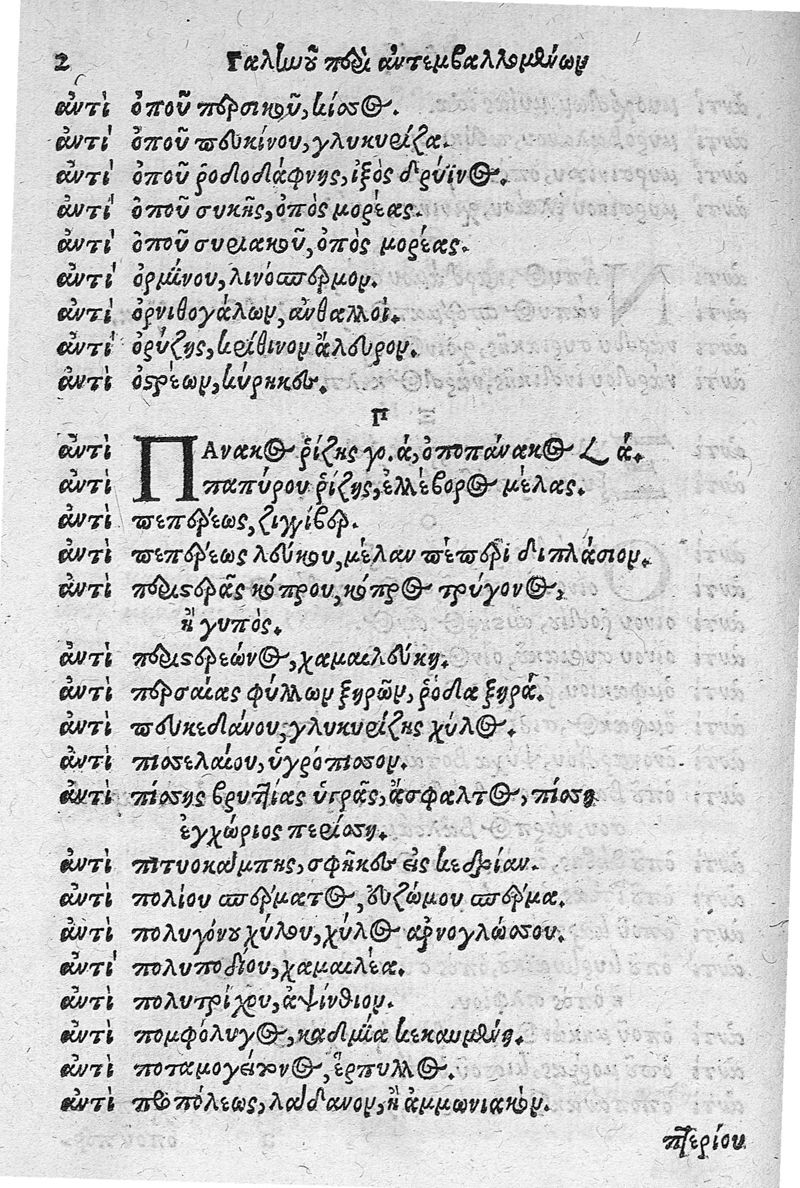 2 Γαλίωοῦ περὶ ἀντεμβαλλομένων
ἀντὶ ὀποῦ περσικοῦ, κίσσος.
ἀντὶ ὀποῦ πευκίνου, γλυκυρίζα.
ἀντὶ ὀποῦ ῥοδοδάφνης, ἰξὸς δρύϊνος.
ἀντὶ ὀποῦ συκῆς, ὀπὸς μορέας.
ἀντὶ ὀποῦ συριακοῦ, ὀπὸς μορέας.
ἀντὶ ὁρμίνου, λινόσπερμον.
ἀντὶ ὀρνιθογάλων, ἀνθαλλοὶ.
ἀντὶ ὀρύζης, κρίθινον ἄλευρον.
ἀντὶ ὀστρέων, κύρηκες.
Π
ἀντὶ ΠΑνακος ῥίζης γο. ά, ὀποπάνακος ά.
ἀντὶ παπύρου ῥίζης, ἑλλέβορος μέλας.
ἀντὶ πεπέρεως, ζιγγίβερ.
ἀντὶ πεπέρεως λεύκου, μέλαν πέπερι διπλάσιον.
ἀντὶ περιστερᾶς κόπρου, κόπρος τρύγονος,
ἢ γυπὸς.
ἀντὶ περιστερεώνος, χαμαιλεύκη.
ἀντὶ περσαίας φύλλων ξηρῶν, ῥόδα ξηρά.
ἀντὶ πευκεδάνου, γλυκυρίζης χύλος.
ἀντὶ πισσελαίου, ὑγρόπισσον.
ἀντὶ πίσσης βρυτίας ὑγρᾶς, ἄσφαλτος, πίσσῃ
ἐγχώριος περίσσῃ.
ἀντὶ πιτυοκάμπης, σφῆκες εἰς κεδρίαν.
ἀντὶ πολίου σπέρματος, εὐζώμου σπέρμα.
ἀντὶ πολυγόνου χύλου, χύλος ἀρνογλώσσου.
ἀντὶ πολυποδίου, χαμαιλέα.
ἀντὶ πολυτρίχου, ἀψίνθιον.
ἀντὶ πομφόλυγος, καδμῖα κεκαυμένη.
ἀντὶ ποταμογείτονος, ἕρπυλλος.
ἀντὶ προπόλεως, λάδανον, ἢ ἀμμωνιακὸν.
πτερίου